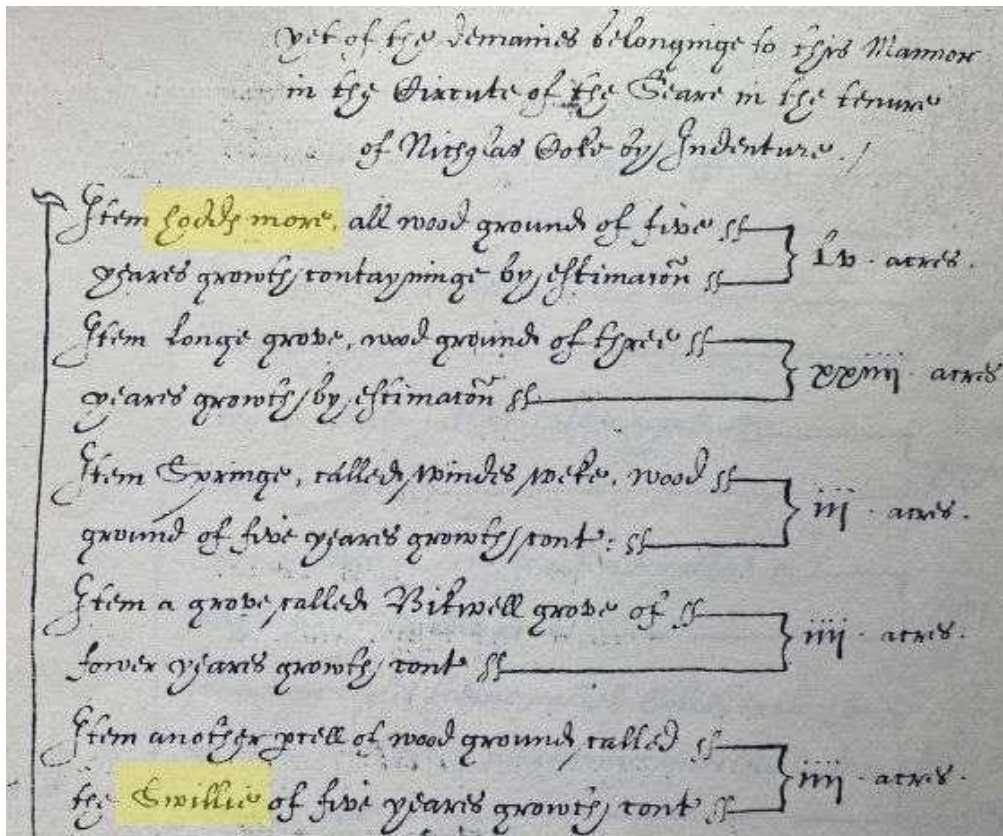 yet of the demaines belonginge to this Mannor
in the Circute of the Seare in the tenure
of Nicholas Coke by Indenture ./
Item hodds more, all wood ground of five
yeares growth contayninge by estimacōn
lv · acres ·
Item longe grove, wood ground of three
yeares growth by estimacōn
xxiiij · acres
Item Springe, called windes weke, wood
ground of five yeares growth cont:
iij · acres ·
Item a grove called Bikwell grove of
fower yeares growth cont
iiij · acres ·
Item another pcell of wood ground called
the Swillie of five yeares growth cont
iiij · acres ·